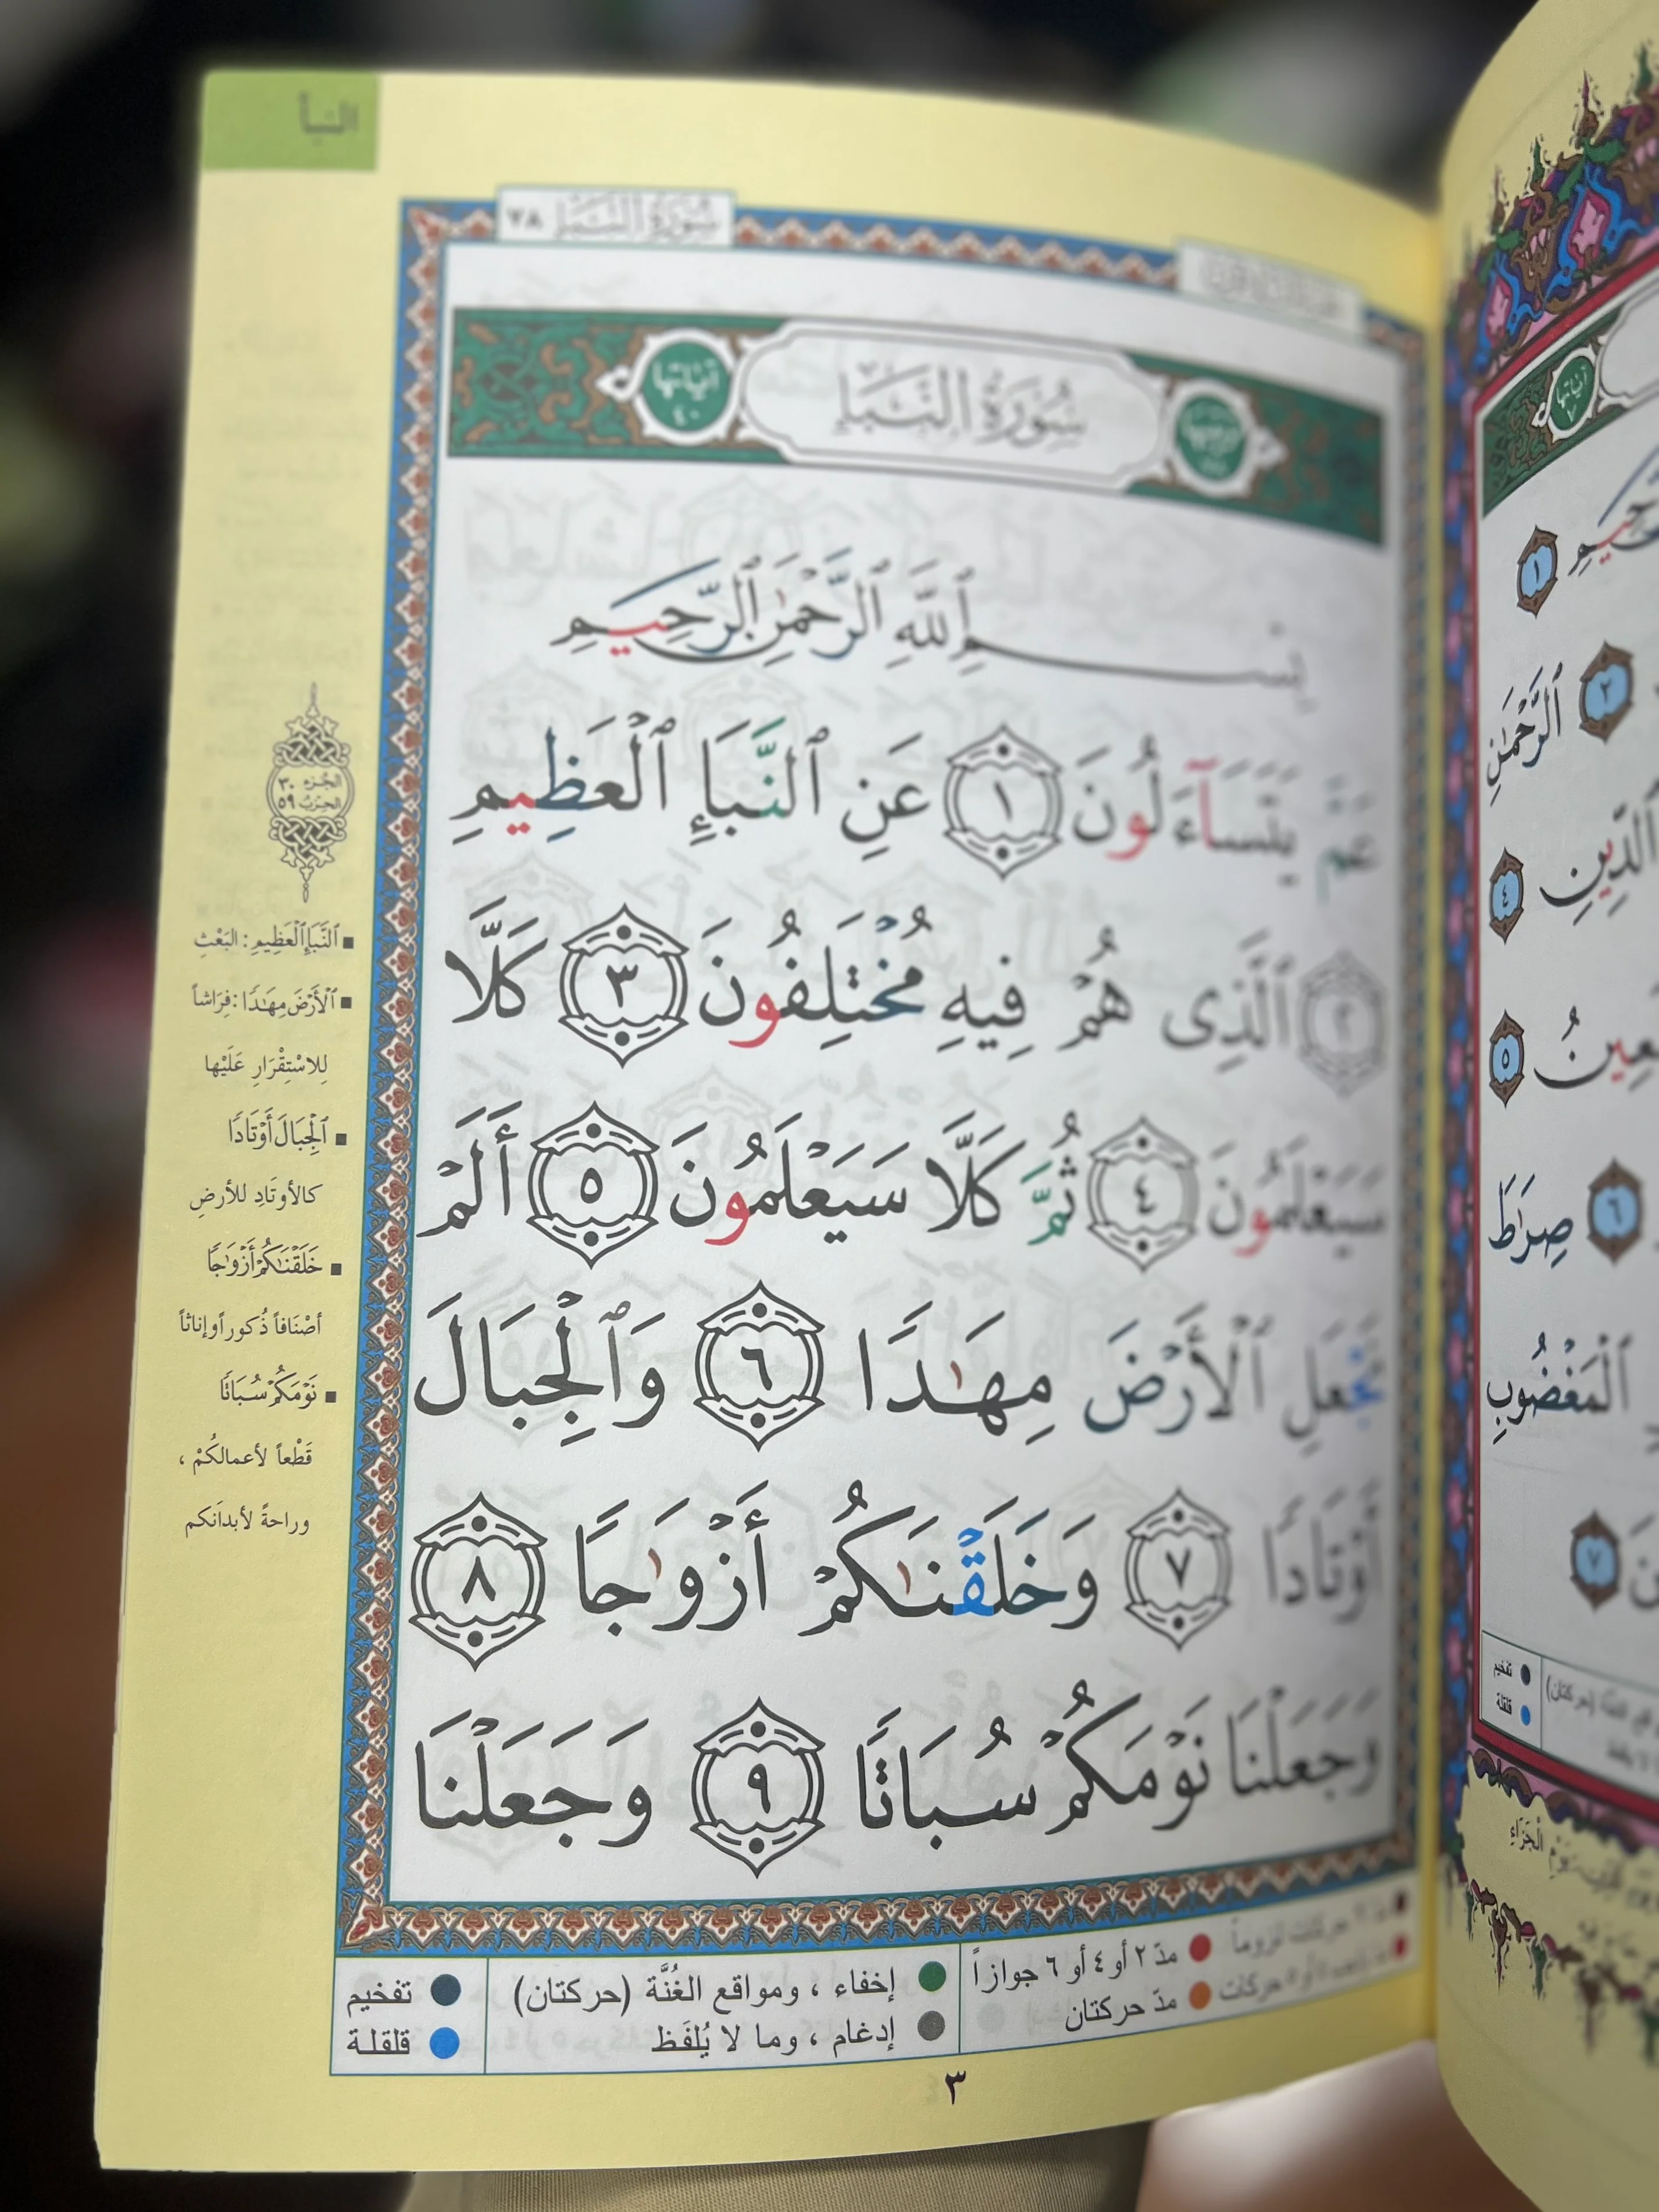 النبأ
سُورَةُ النَّبَإِ ٧٨
سُورَةُ النَّبَإِ
آياتها
٤٠
بِسْمِ ٱللَّهِ ٱلرَّحْمَٰنِ ٱلرَّحِيمِ
عَمَّ يَتَسَآءَلُونَ ١ عَنِ ٱلنَّبَإِ ٱلْعَظِيمِ
٢ ٱلَّذِى هُمْ فِيهِ مُخْتَلِفُونَ ٣ كَلَّا
سَيَعْلَمُونَ ٤ ثُمَّ كَلَّا سَيَعْلَمُونَ ٥ أَلَمْ
نَجْعَلِ ٱلْأَرْضَ مِهَٰدًا ٦ وَٱلْجِبَالَ
أَوْتَادًا ٧ وَخَلَقْنَٰكُمْ أَزْوَٰجًا ٨
وَجَعَلْنَا نَوْمَكُمْ سُبَاتًا ٩ وَجَعَلْنَا
الجُزء ٣٠
الحِزبُ ٥٩
■ ٱلنَّبَإِ ٱلْعَظِيمِ : البَعْثِ
■ ٱلْأَرْضَ مِهَٰدًا : فِرَاشاً
لِلاسْتِقْرَارِ عَلَيْها
■ ٱلْجِبَالَ أَوْتَادًا
كالأوتَادِ للأرضِ
■ خَلَقْنَٰكُمْ أَزْوَٰجًا
أصْنَافاً ذُكوراً وإناثاً
■ نَوْمَكُمْ سُبَاتًا
قَطْعاً لأعمالكُمْ ،
وراحةً لأبدَانكم
مدّ ٢ أو ٤ أو ٦ جوازاً
مدّ حركتان
إخفاء ، ومواقع الغُنَّة (حركتان)
إدغام ، وما لا يُلفَظ
تفخيم
قلقلة
٣
آياتها
٧
١
ٱلرَّحْمَٰنِ ٢
ٱلدِّينِ ٤
٥
صِرَٰطَ ٦
ٱلْمَغْضُوبِ
٧
تفخيم
قلقلة
الْجَزَاءِ